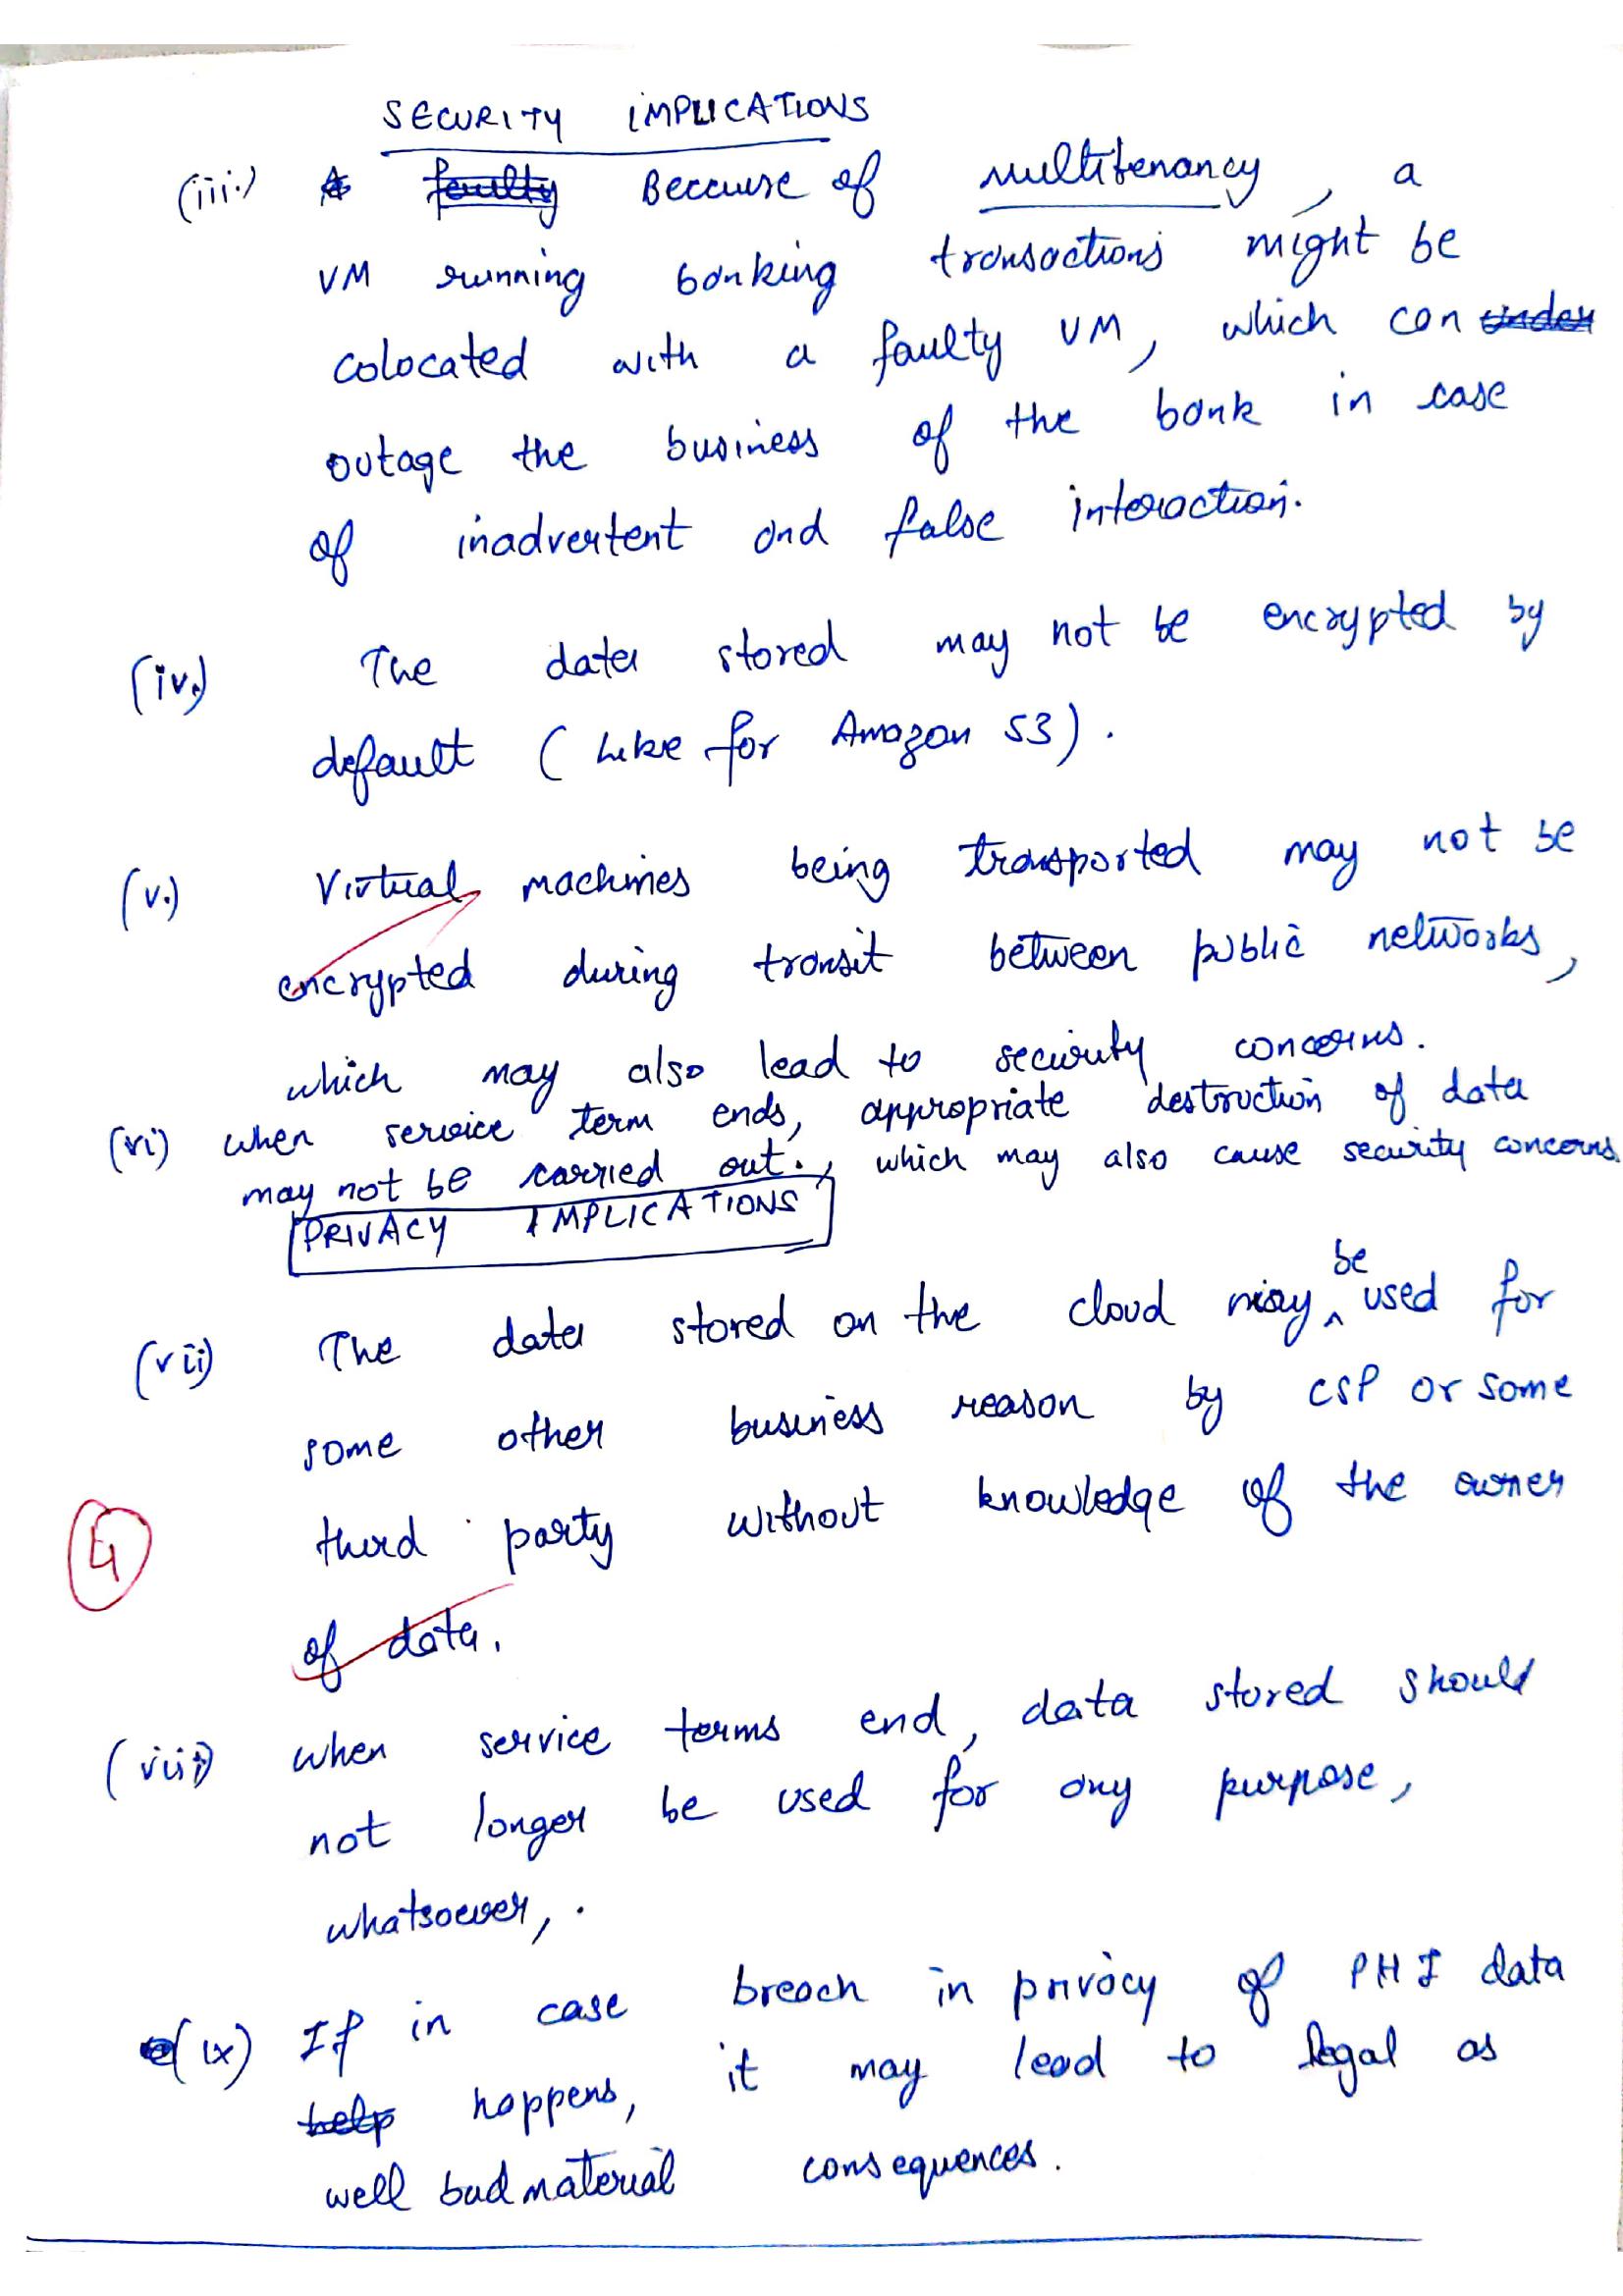 SECURITY IMPLICATIONS
(iii.) A faulty Because of multitenancy, a
VM running banking transactions might be
colocated with a faulty VM, which can under
outage the business of the bank in case
of inadvertent and false interaction.
(iv.) The data stored may not be encrypted by
default (Like for Amazon S3).
(v.) Virtual machines being transported may not be
encrypted during transit between public networks,
which may also lead to security concerns.
(vi) when service term ends, appropriate destruction of data
may not be carried out., which may also cause security concerns
PRIVACY IMPLICATIONS
(vii) The data stored on the cloud may be used for
some other business reason by CSP or some
third party without knowledge of the owner
4
of data.
(viii) when service terms end, data stored should
not longer be used for any purpose,
whatsoever, .
(ix) If in case breach in privacy of PHI data
help happens, it may lead to legal as
well bad material consequences.